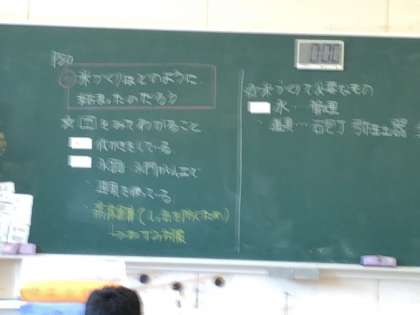 P80
米づくりはどのように
始まったのだろう?
図をみてわかること
代かきをしている
水路 水門がある
道具を使っている
高床倉庫(しっ気を防ぐため)
米づくりで必要なもの
水…管理
道具…石包丁 弥生土器
0:00